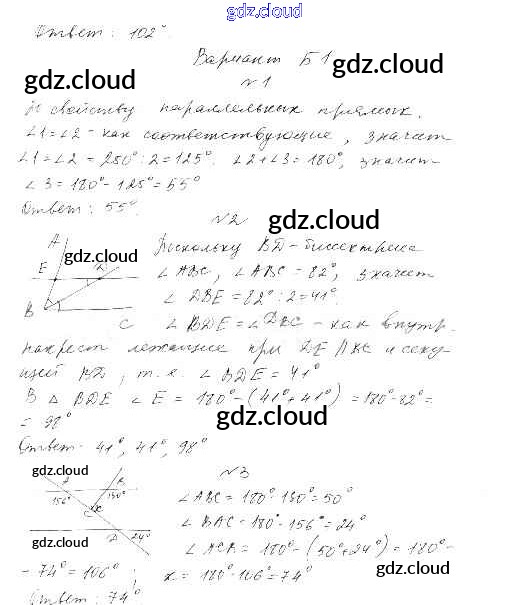 gdz.cloud
Ответ: 102°.
Вариант Б1
gdz.cloud
gdz.cloud
№1
и свойству параллельных прямых.
∠1=∠2 - как соответствующие, значит
∠1=∠2 = 250°:2=125°. ∠2+∠3=180°, значит
∠3=180°-125°=55°
Ответ: 55°.
№2
gdz.cloud
A
Поскольку BD - биссектриса
gdz.cloud
E
∠ABC, ∠ABC = 82°, значит
∠DBE = 82°:2=41°.
B
C
∠BDE = ∠DBC - как внутр.
накрест лежащие при DE || BC и секу-
щей BD, т.е. ∠BDE = 41°
В △ BDE ∠E = 180°-(41°+41°) = 180°-82°=
= 98°
gdz.cloud
Ответ: 41°, 41°, 98°
№3
gdz.cloud
A B
156° 130°
∠ABC = 180°-130°=50°
gdz.cloud
C x
∠BAC = 180°-156°=24°
D 24°
gdz.cloud
∠ACB = 180°-(50°+24°) = 180°-
- 74° = 106°; x = 180°-106°=74°
gdz.cloud
gdz.cloud
Ответ: 74°